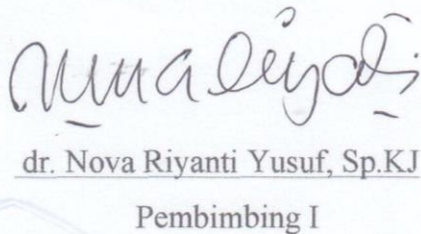 dr. Nova Riyanti Yusuf, Sp.KJ
Pembimbing I